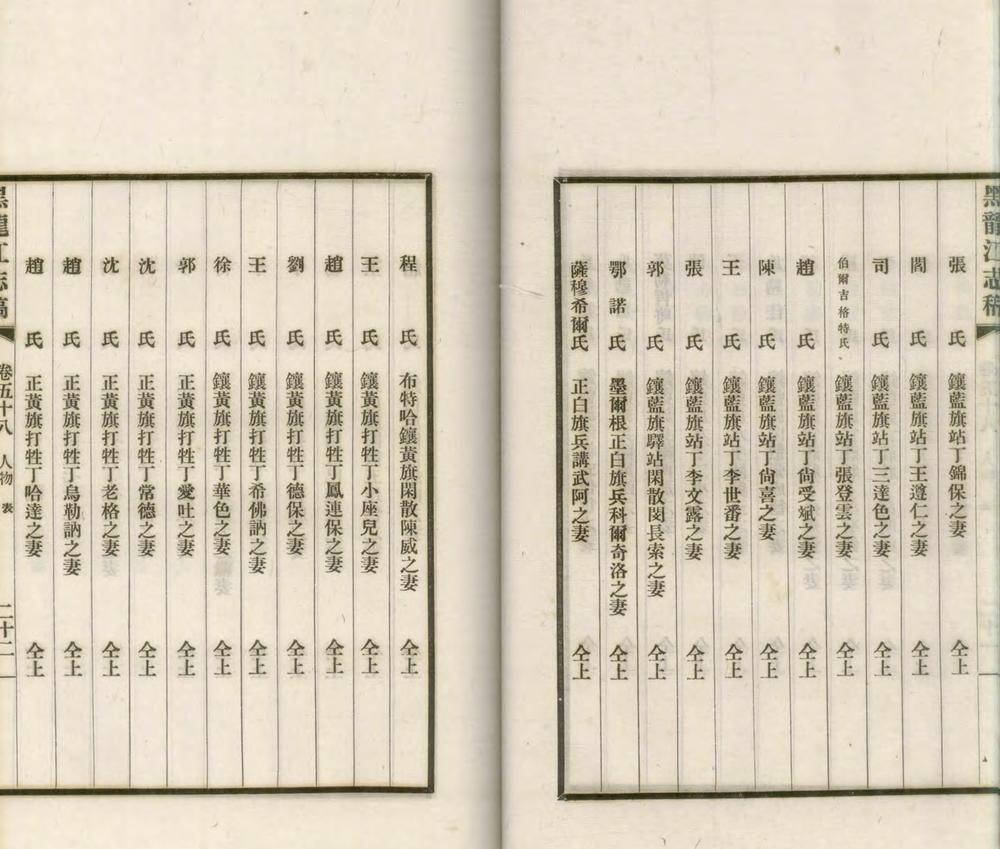 黑龍江志稿
張氏 鑲藍旗站丁錦保之妻 仝上
閻氏 鑲藍旗站丁王遵仁之妻 仝上
司氏 鑲藍旗站丁三達色之妻 仝上
伯爾吉格特氏 鑲藍旗站丁張登雲之妻 仝上
趙氏 鑲藍旗站丁尙受斌之妻 仝上
陳氏 鑲藍旗站丁尙喜之妻 仝上
王氏 鑲藍旗站丁李世番之妻 仝上
張氏 鑲藍旗站丁李文露之妻 仝上
郭氏 鑲藍旗驛站閑散閔長索之妻 仝上
鄂諾氏 墨爾根正白旗兵科爾奇洛之妻 仝上
薩穆希爾氏 正白旗兵講武阿之妻 仝上
程氏 布特哈鑲黃旗閑散陳威之妻 仝上
王氏 鑲黃旗打牲丁小座兒之妻 仝上
趙氏 鑲黃旗打牲丁鳳連保之妻 仝上
劉氏 鑲黃旗打牲丁德保之妻 仝上
王氏 鑲黃旗打牲丁希佛訥之妻 仝上
徐氏 鑲黃旗打牲丁華色之妻 仝上
郭氏 正黃旗打牲丁愛吐之妻 仝上
沈氏 正黃旗打牲丁常德之妻 仝上
沈氏 正黃旗打牲丁老格之妻 仝上
趙氏 正黃旗打牲丁烏勒訥之妻 仝上
趙氏 正黃旗打牲丁哈達之妻 仝上
黑龍江志稿 卷五十八 人物 表 二十二